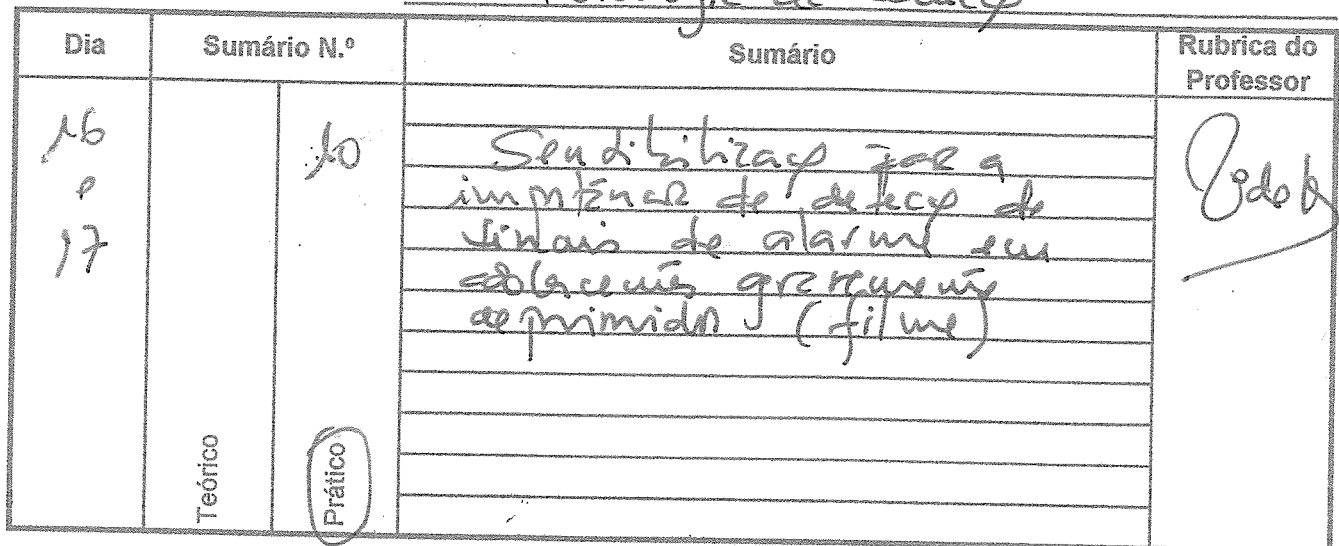 de
Dia Sumário N.º Sumário Rubrica do Professor
16 e 17
10
Sensibilização para a
importância de detecção de
sinais de alarme em
adolescentes gravemente
deprimidos (filme)
Teórico Prático